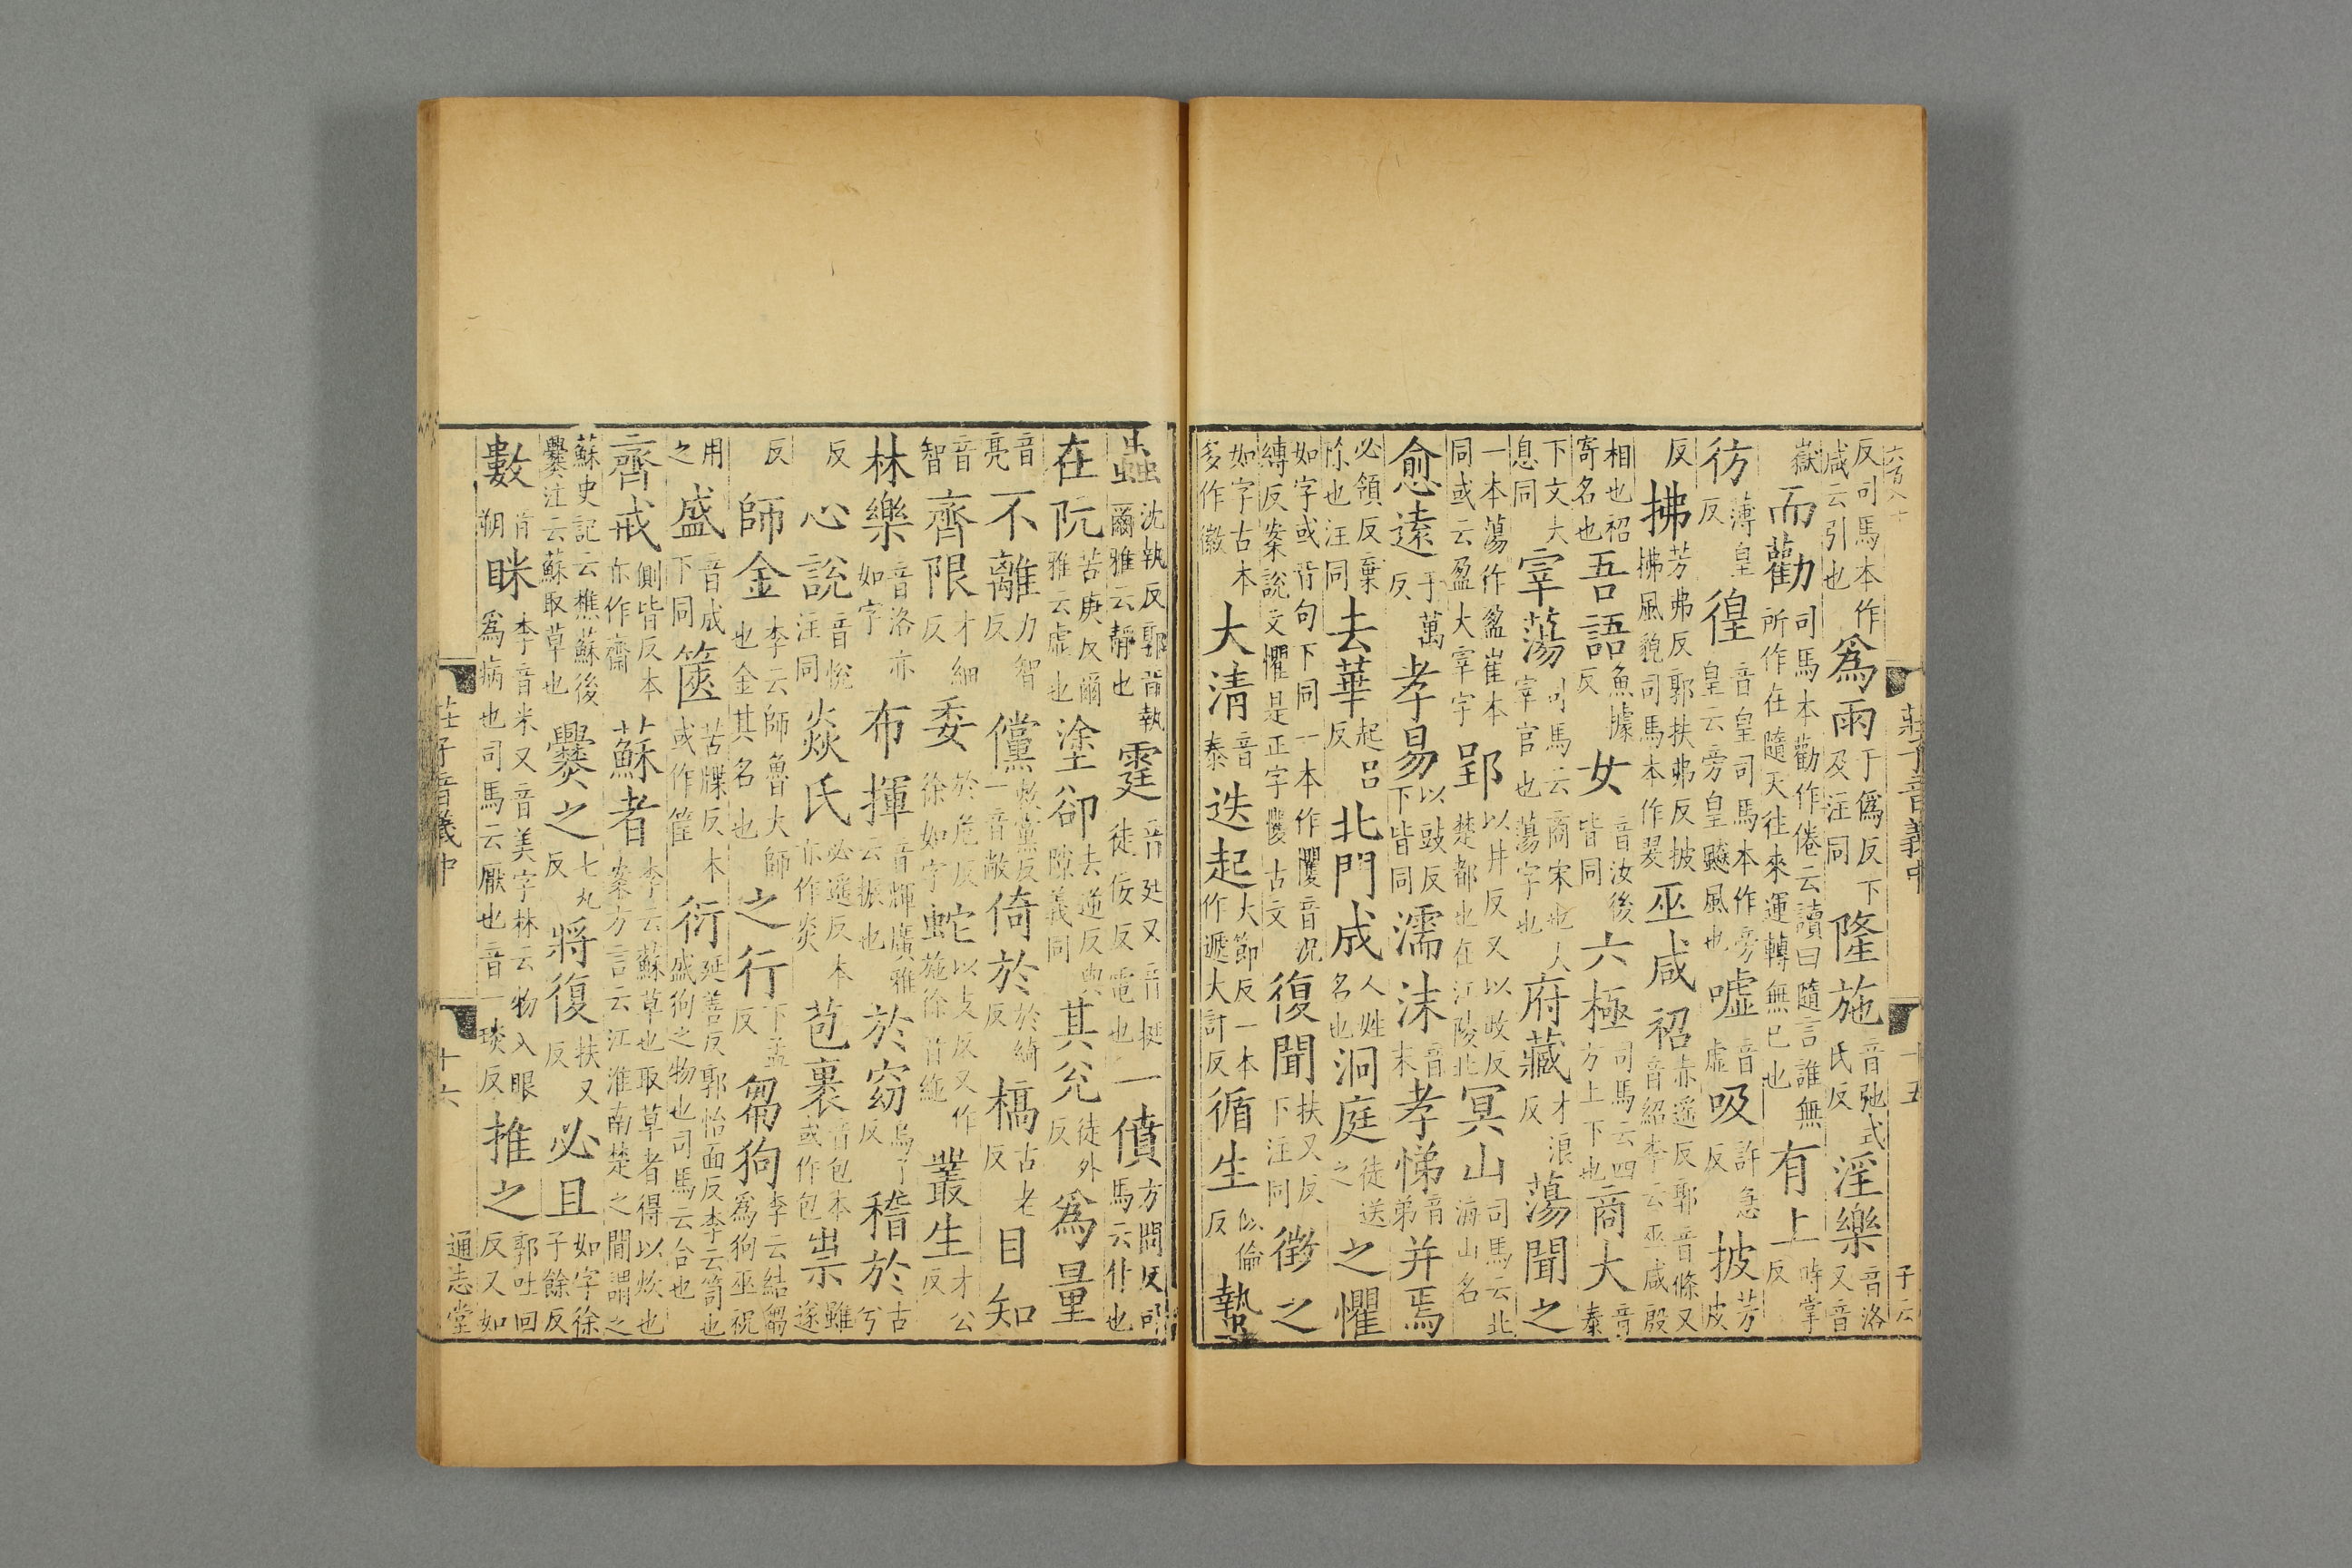 莊子音義中 十五
反司馬本作咸云引也爲雨于僞反下及注同隆施音弛式氏反淫樂音洛又音
嶽而勸司馬本勸作倦云讀曰隨言誰無所作在隨天往來運轉無已也有上時掌反
彷薄皇反徨音皇司馬本作旁皇云旁皇飈風也嘘音虛吸許急反披芳皮
反拂芳弗反郭扶弗反披拂風貌司馬本作翇巫咸祒赤遥反郭音條又音紹李云巫咸殷
相也祒寄名也吾語魚據反女音汝後皆同六極司馬云四方上下也商大音泰
下文大息同宰蕩司馬云商宋也人宰官也蕩字也府藏才浪反蕩聞之
一本蕩作盈崔本同或云盈大宰字郢以井反又以政反楚都也在江陵北冥山司馬云北海山名
愈遠于萬反孝易以豉反下皆同濡沫音末孝悌音弟并焉
必領反棄除也注同去華起吕反北門成人姓名也洞庭徒送之之懼
如字或音句下同一本作戄音況縛反案說文懼是正字戄古文復聞扶又反下注同徵之
如字古本多作徽大清音泰迭起大節反一本作遞大計反循生似倫反蟄
蟲沈執反郭音執爾雅云靜也霆音廷又音挺徒佞反電也一僨方問反司馬云仆也
在阬苦庚反爾雅云虛也塗卻去逆反與隙義同其兊徒外反爲量
音亮不離力智反儻敕黨反一音敞倚於於綺反槁古老反目知
音智齊限才細反委於危反徐如字蛇以支反又作施徐音絁叢生才公反
林樂音洛亦如字布揮音輝廣雅云振也於窈烏了反稽於古兮
反心說音悅注同焱氏必遥反本亦作炎苞裹音包本或作包祟雖遂
反師金李云師魯大師也金其名也之行下孟反芻狗李云結芻爲狗巫祝
用之盛音成下同篋苦牒反本或作筐衍延善反郭怡面反李云笥也盛狗之物也司馬云合也
齊戒側皆反本亦作齋蘇者李云蘇草也取草者得以炊也案方言云江淮南楚之間謂之
蘇史記云樵蘇後爨注云蘇取草也爨之七丸反將復扶又反必且如字徐子餘反
數音朔眯李音米又音美字林云物入眼爲病也司馬云厭也音一琰反推之郭吐回反又如
莊子音義中 十六 通志堂